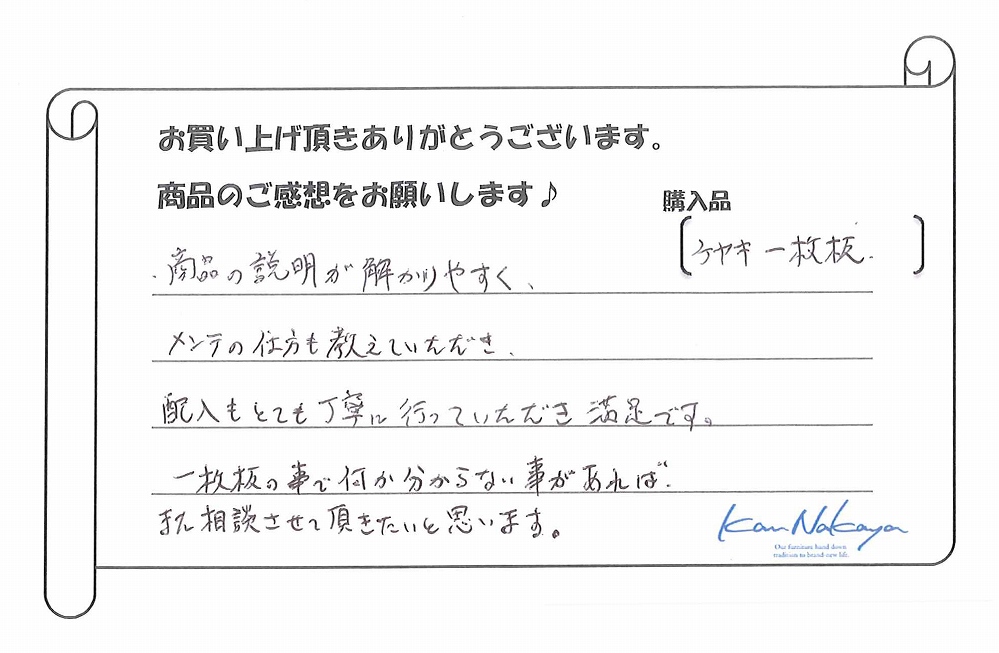 お買い上げ頂きありがとうございます。
商品のご感想をお願いします♪
購入品
ケヤキ一枚板.
・商品の説明が解かりやすく、
メンテの仕方も教えていただき、
配入もとても丁寧に行っていただき満足です。
一枚板の事で何か分からない事があれば、
また相談させて頂きたいと思います。
Kan Nakaya
Our furniture hand down
tradition to brand-new life.